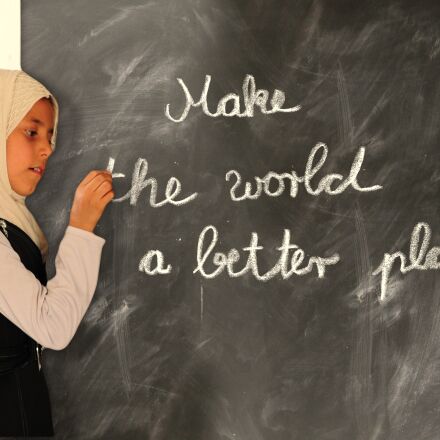 Make
the world
a better pla